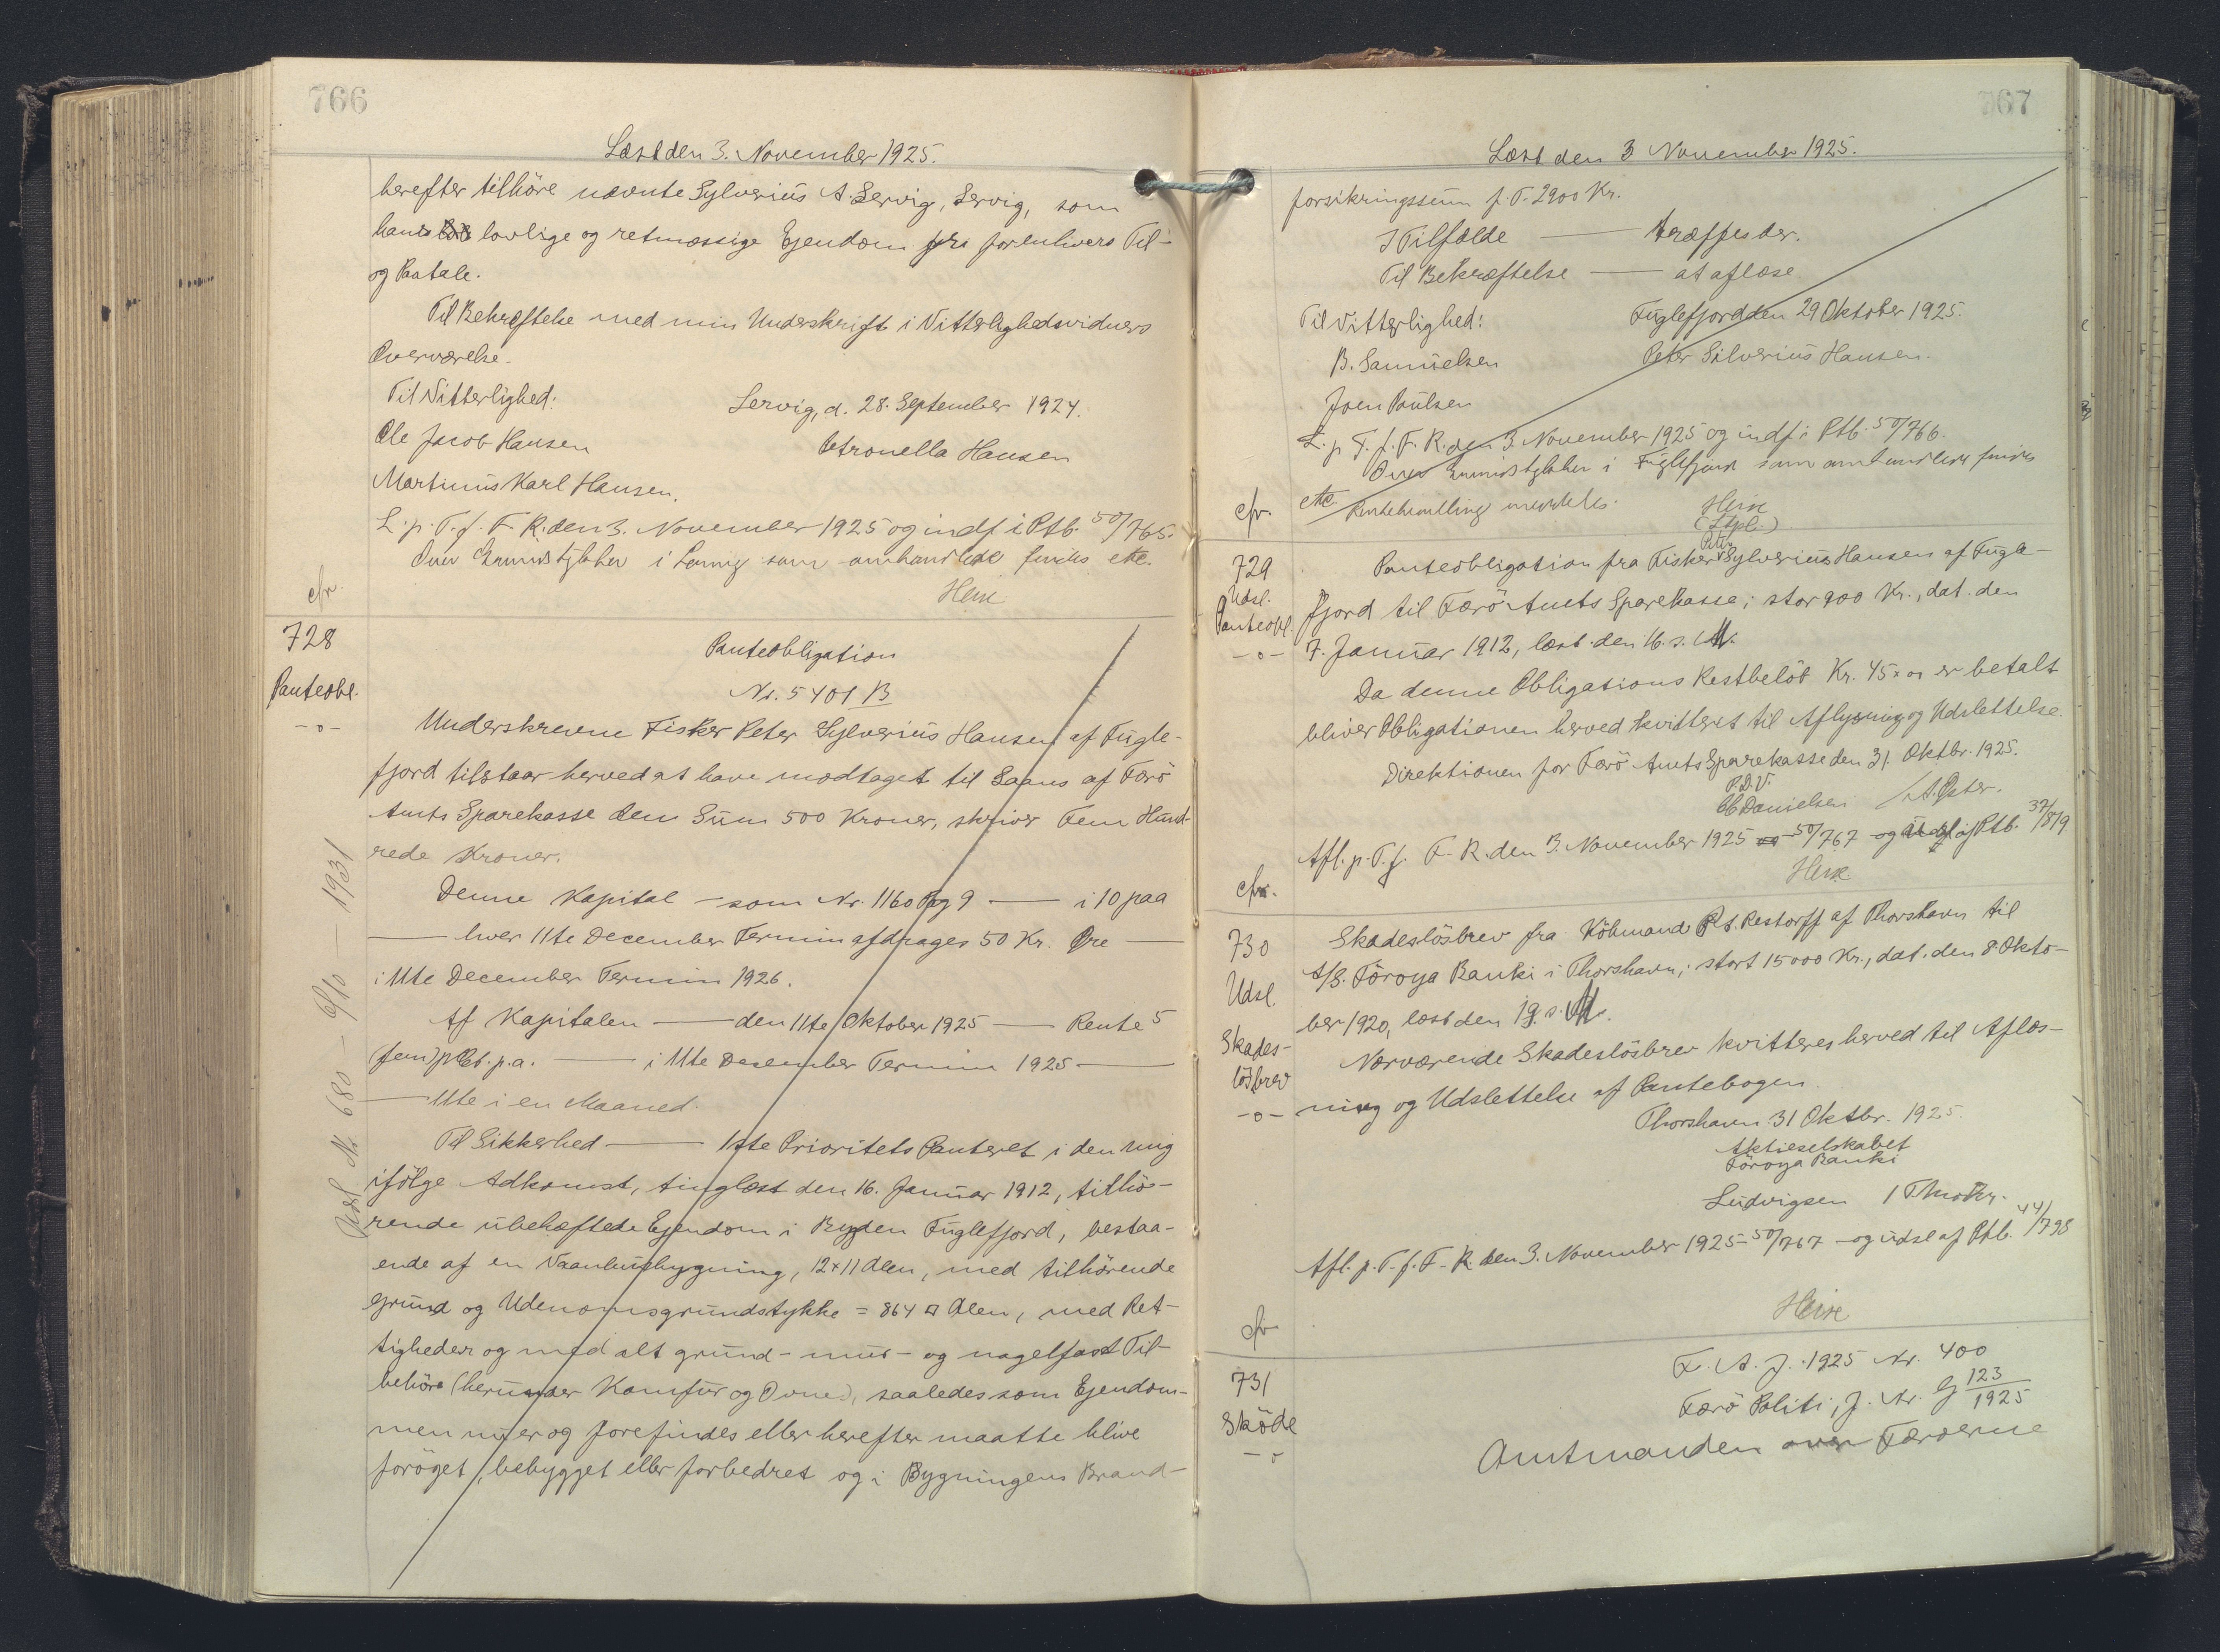 766
Læst den 3. November 1925.
herefter tilhöre nævnte Sylverius A. Lervig, Lervig, som
hans lovlige og retmæssige Ejendom fra forenhvers Til-
og Paatale.
Til Bekræftelse med min Underskrift i Vitterlighedsvidners
Overværelse.
Til Vitterlighed:
Lervig, d. 28. September 1924.
Ole Jacob Hansen
Petronella Hansen
Martinus Karl Hansen.
L. p. T. f. F. R. den 3. November 1925 og indf i Ptb. 50/765.
Over Grundstykker i Lervig som omhandlede findes etc.
cfr.
Heise
728
Panteobl.
-o-
Panteobligation
Nr. 5401 B
Underskrevne Fisker Peter Sylverius Hansen af Fugle-
fjord tilstaar herved at have modtaget til Laans af Færö
Amts Sparekasse den Sum 500 Kroner, skriver Fem Hund-
rede Kroner.
Denne Kapital – som Nr. 1160 Pag 9 — i 10 paa
— hver 11te December Termin afdrages 50 Kr. Øre —
i 11te December Termin 1926.
Af Kapitalen — den 11te Oktober 1925 — Rente 5
(fem) pCt. p.a. — i 11te December Termin 1925 —
— 11te i en Maaned.
Til Sikkerhed — 1ste Prioritets Panteret i den mig
ifölge Adkomst, tinglæst den 16. Januar 1912, tilhö-
rende ubehæftede Ejendom i Bygden Fuglefjord, bestaa-
ende af en Vaanhusbygning, 12 x 11 Alen, med tilhörende
Grund og Udenomsgrundstykke = 864 □ Alen, med Ret-
tigheder og med alt grund- mur- og nagelfast Til-
behör (herunder Komfur og Ovne), saaledes som Ejendom-
men nu er og forefindes eller herefter maatte blive
foröget, bebygget eller forbedret og i Bygningens Brand-
Udsl № 680 – 6/10 – 1931
767
Læst den 3 November 1925.
forsikringssum p. T. 2900 Kr.
I Tilfælde — træffes der.
Til Bekræftelse — at aflæse
Til Vitterlighed:
Fuglefjord den 29 Oktober 1925.
B. Samuelsen
Peter Silverius Hansen.
Joen Poulsen
L. p. T. f. F. R. den 3. November 1925 og indf i Ptb. 50/766.
Over Grundstykker i Fuglefjord som omhandlede findes
etc. Rentehandling meddeles.
cfr.
Heise
(Stpl.)
729
Udsl.
Panteobl.
-o-
Panteobligation fra Fisker Peter Sylverius Hansen af Fugle-
fjord til Færö Amts Sparekasse; stor 900 Kr., dat. den
7. Januar 1912, læst den 16. s. M.
Da denne Obligations Restbelöb Kr. 45 x 00 er betalt
bliver Obligationen herved kvitteret til Aflysning og Udslettelse.
Direktionen for Færö Amts Sparekasse den 31. Oktbr. 1925.
P.D.V.
Danielsen / A. Peter.
Afl. p. T. f. F. R. den 3. November 1925 50/767 og Udsl af Ptb. 37/819
Heise
cfr.
730
Udsl.
Skades-
lösbrev
-o-
Skadeslösbrev fra Köbmand Restorff af Thorshavn til
A/S. Föroya Banki i Thorshavn; stort 15000 Kr., dat. den 8. Okto-
ber 1920, læst den 19. s. M.
Nærværende Skadeslösbrev kvitteres herved til Aflæs-
ning og Udslettelse af Pantebogen.
Thorshavn 31 Oktbr. 1925.
Aktieselskabet
Föroya Banki
Ludvigsen /
Afl. p. T. f. F. R. den 3. November 1925 – 50/767 – og udsl af Ptb. 44/798
Heise
cfr
731
Sköde
-o
F. A. J. 1925 Nr. 400
Færö Politi, J. Nr. G 123/1925
Amtmanden over Færöerne